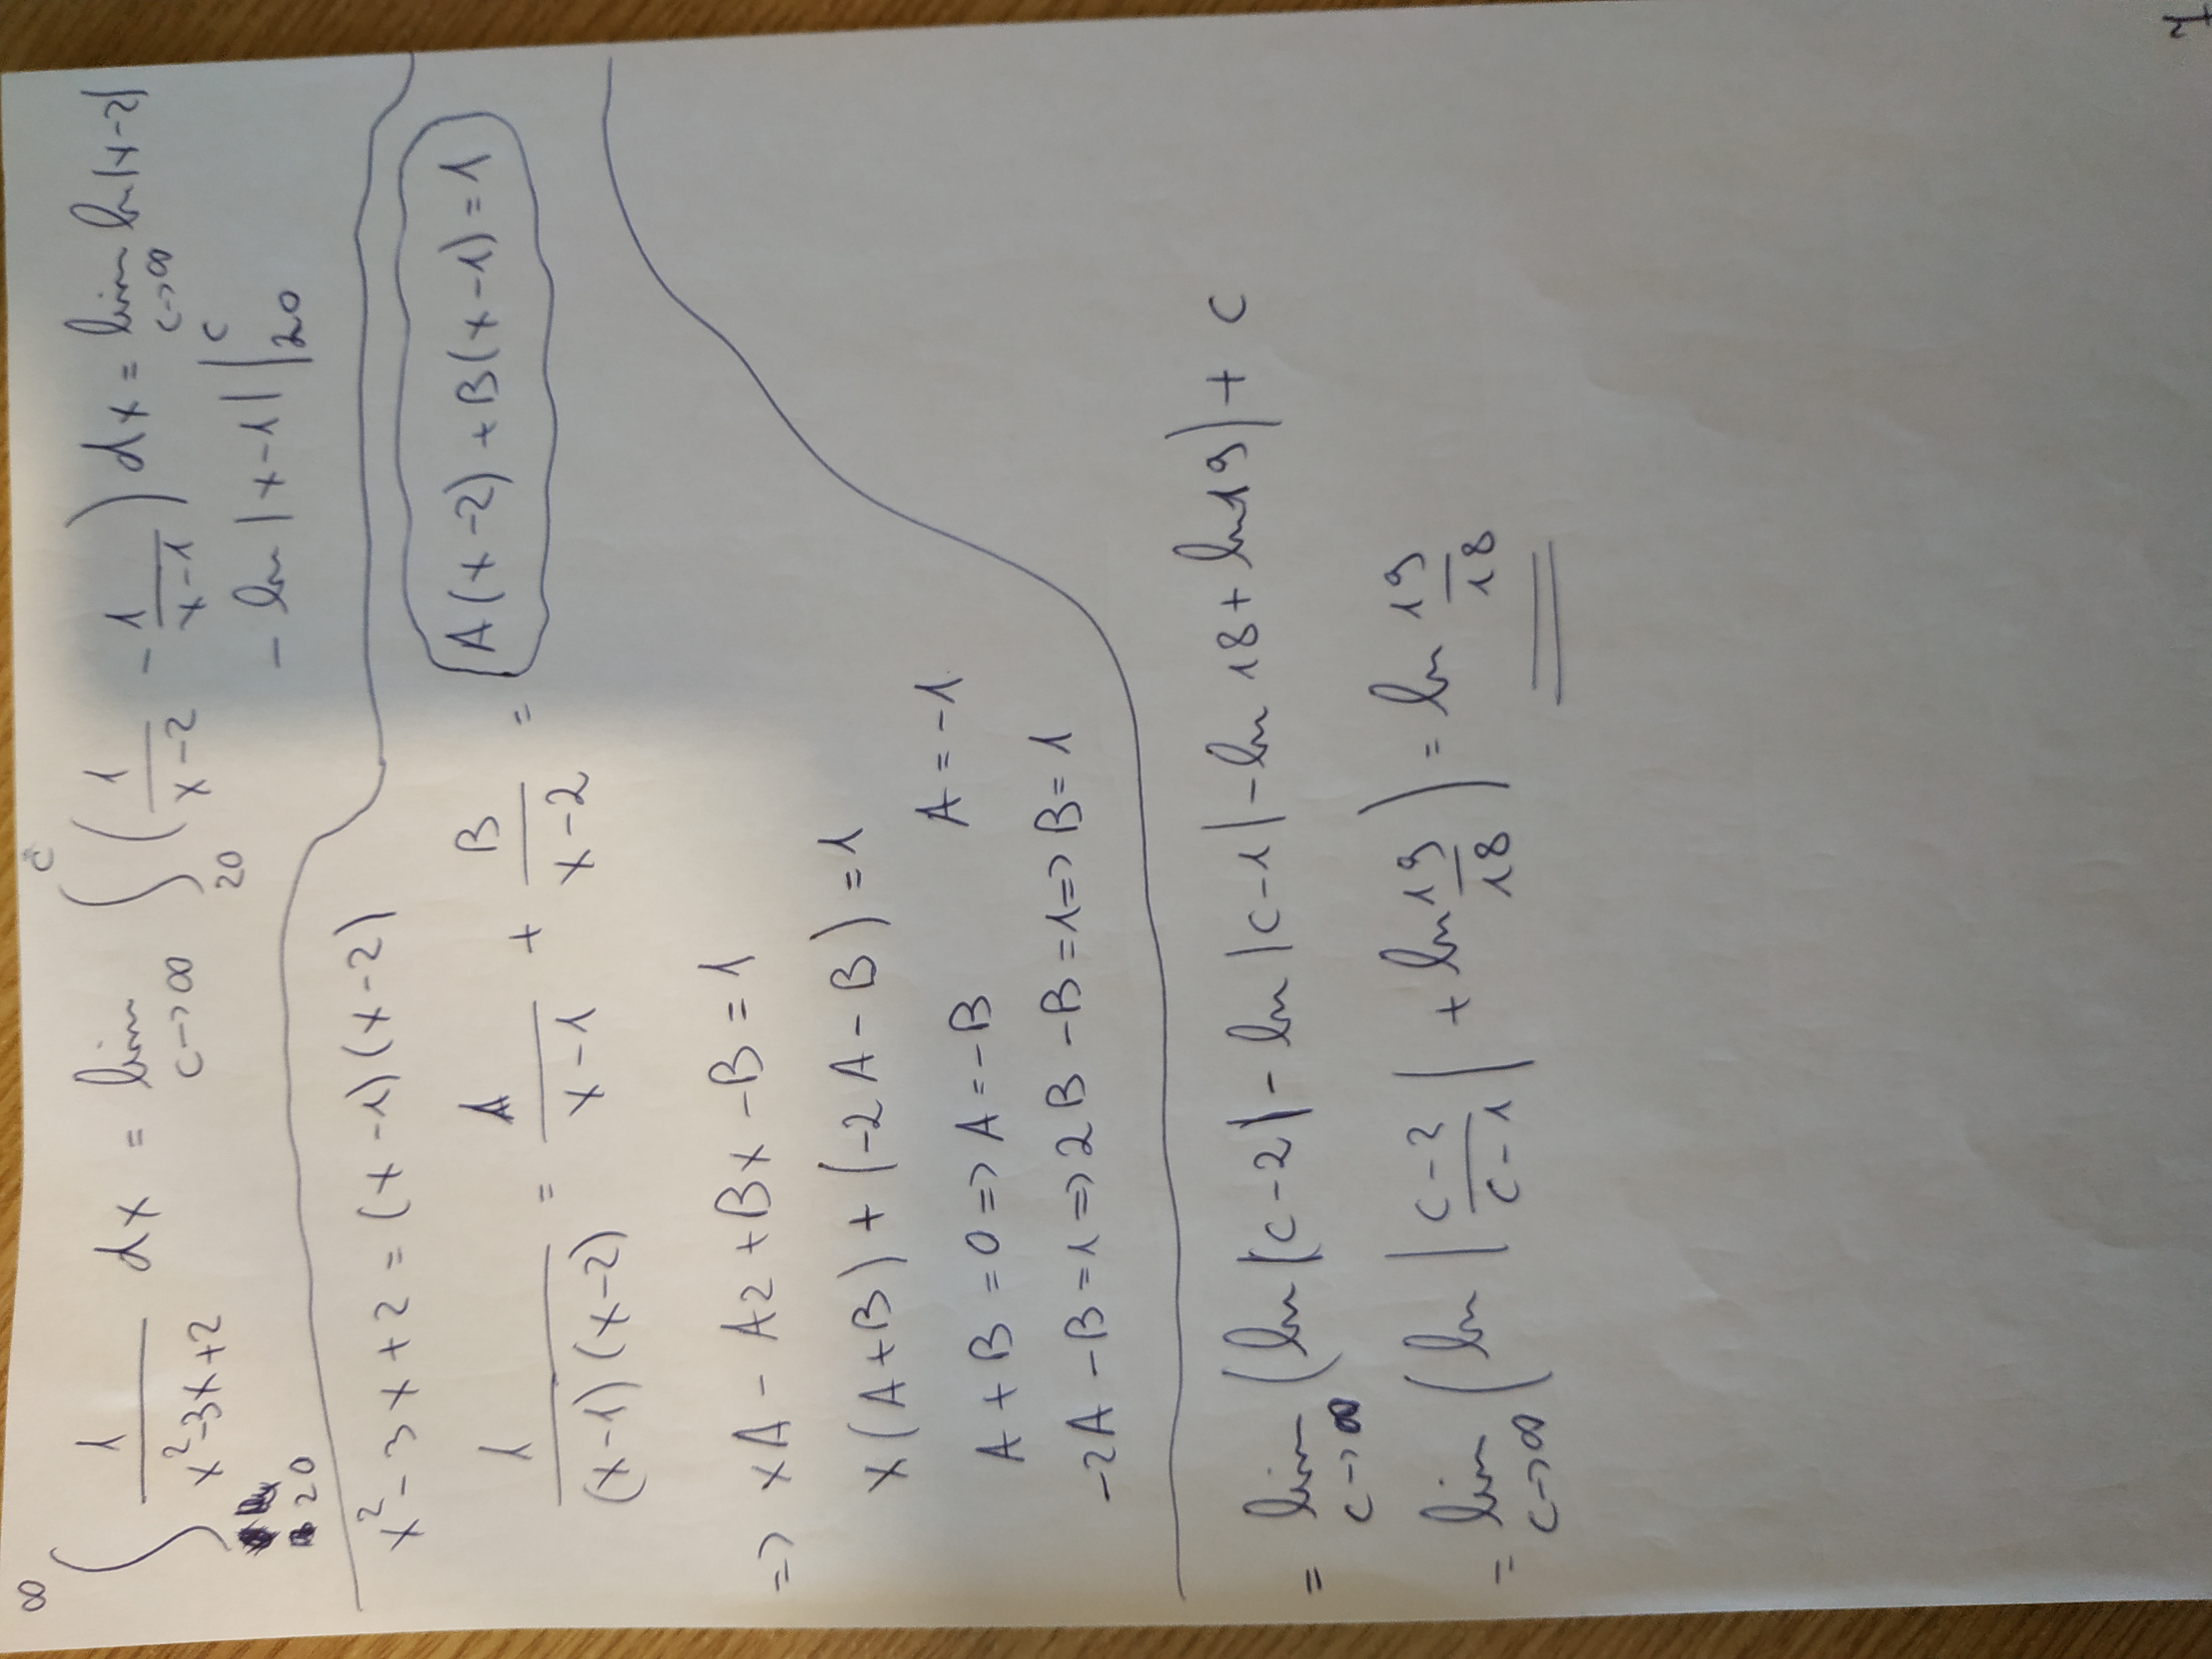 ∫_{20}^{∞} 1/(x²-3x+2) dx = lim_{c→∞} ∫_{20}^{c} (1/(x-2) - 1/(x-1)) dx = lim_{c→∞} ln|x-2|
- ln|x-1| |_{20}^{c}
x²-3x+2=(x-1)(x-2)
1/((x-1)(x-2)) = A/(x-1) + B/(x-2) = A(x-2)+B(x-1)=1
=> xA - A2 + Bx - B = 1
x(A+B) + (-2A-B) = 1
A + B = 0 => A = -B A = -1
-2A - B = 1 => 2B - B = 1 => B = 1
= lim_{c→∞} (ln|c-2| - ln|c-1| - ln 18 + ln 19) + c
= lim_{c→∞} (ln|(c-2)/(c-1)| + ln 19/18) = ln 19/18